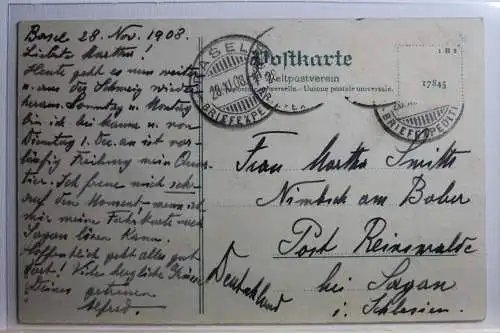 Basel 28. Nov. 1908.
Liebste Martha!
Heute geht es nun weiter
aus der Schweiz wieder
heraus. Sonntag u. Montag
bin ich bei Hanne u. von
Dienstag 1. Dez. an ist vor-
läufig Freiburg mein Quar-
tier. Ich freue mich sehr
auf den Moment wenn ich
mir meine Fahrkarte nach
Sagan lösen kann.
Hoffentlich geht alles gut
fort! Viele herzliche Grüsse
Deines getreuen
Alfred.
BASEL
28.XI.08
BRIEFEXPE
Postkarte
Weltpostverein
Union postale universelle.
17845
BRIEFEXPEDITI
Frau Martha Smith
Nimbsch am Bober
Post Reinswalde
bei Sagan
i. Schlesien.
Deutschland